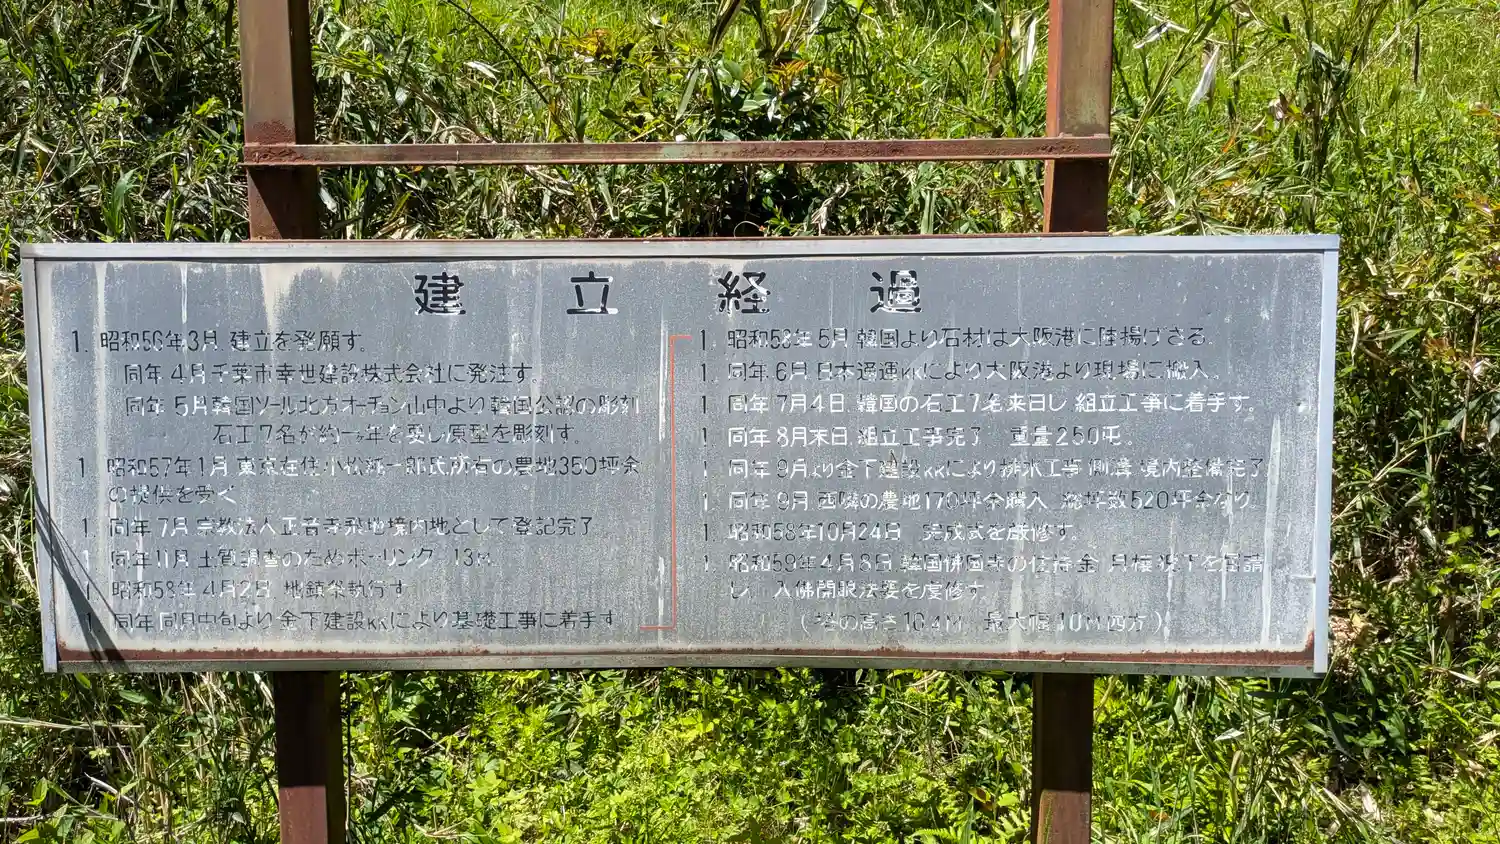 建立経過
1. 昭和56年3月 建立を発願す。
同年 4月千葉市幸世建設株式会社に発注す。
同年 5月韓国ソール北方オーチョン山中より韓国公認の彫刻
石工7名が約一ヶ年を要し原型を彫刻す。
1. 昭和57年1月 東京在住小松 一郎氏所有の農地350坪余
の提供を受く
1. 同年 7月 宗教法人正音寺飛地境内地として登記完了
1. 同年11月 土質調査のためボーリング 13M
1. 昭和58年 4月2日 地鎮祭執行す
1. 同年 同月中旬より金下建設KKにより基礎工事に着手す
1. 昭和58年 5月 韓国より石材は大阪港に陸揚げさる。
1. 同年 6月 日本通運KKにより大阪港より現場に搬入。
1. 同年 7月4日 韓国の石工7名来日し 組立工事に着手す。
1. 同年 8月末日 組立工事完了 重量250屯。
1. 同年 9月より金下建設KKにより排水工事 側溝 境内整備完了
1. 同年 9月 西隣の農地170坪余購入 総坪数520坪余なり
1. 昭和58年10月24日 完成式を厳修す。
1. 昭和59年4月8日 韓国佛国寺の住持金 月 下を
し 入佛開眼法要を 修す
(塔の高さ10.4M 最大幅10M四方)